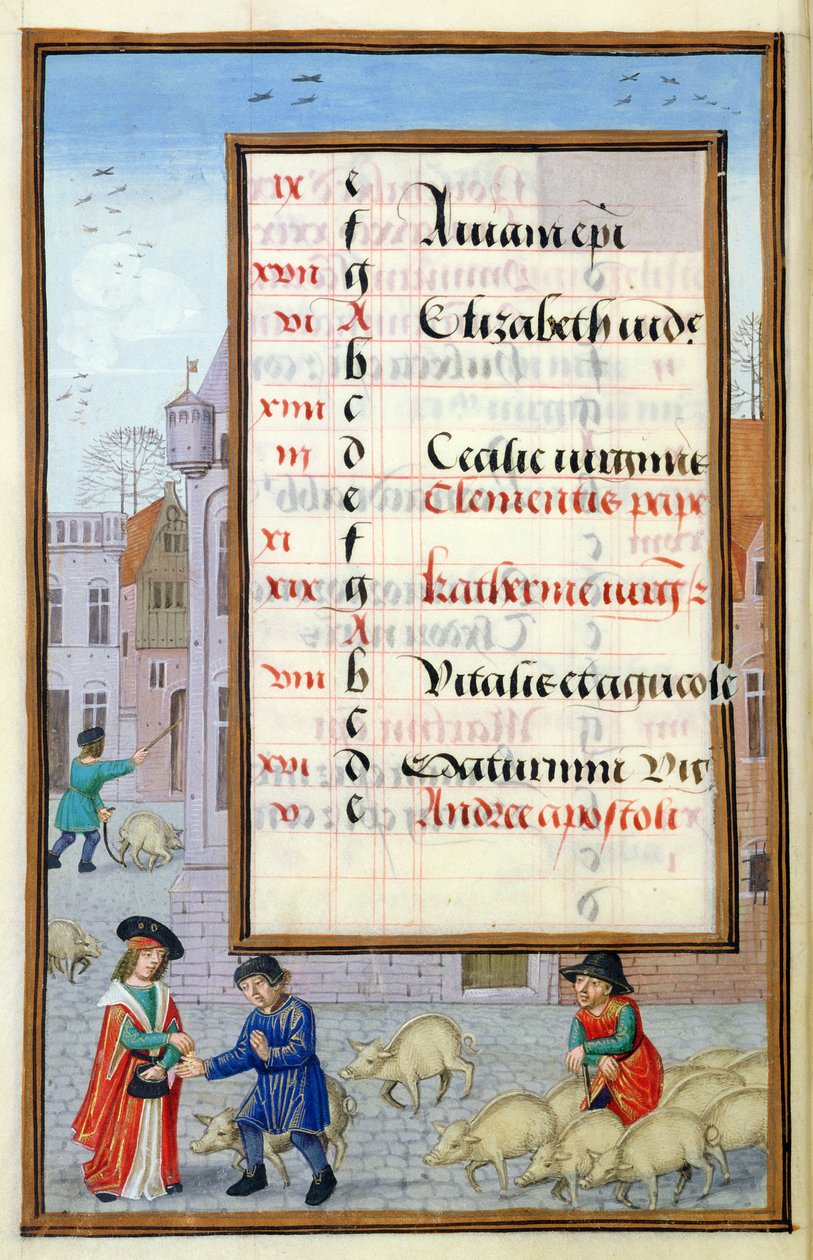 ix e
f Aniani epi
xvii g
vi A Elizabeth uide
b
xiiii c
iii d Cecilie uirginis
e Clementis pape
xi f
xix g Katherine uirg
A
viii b Vitalis et agricole
c
xvi d Saturnini
v e Andree apostoli